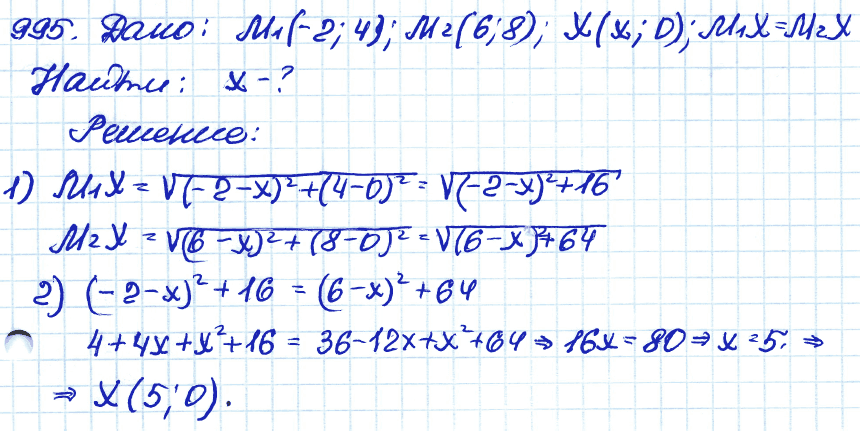 995. Дано: M₁(-2; 4); M₂(6; 8); X(x; 0); M₁X = M₂X
Найти: x - ?
Решение:
1) M₁X = √(-2-x)² + (4-0)² = √(-2-x)² + 16
M₂X = √(6-x)² + (8-0)² = √(6-x)² + 64
2) (-2-x)² + 16 = (6-x)² + 64
4 + 4x + x² + 16 = 36 - 12x + x² + 64 ⇒ 16x = 80 ⇒ x = 5. ⇒
⇒ X(5; 0).